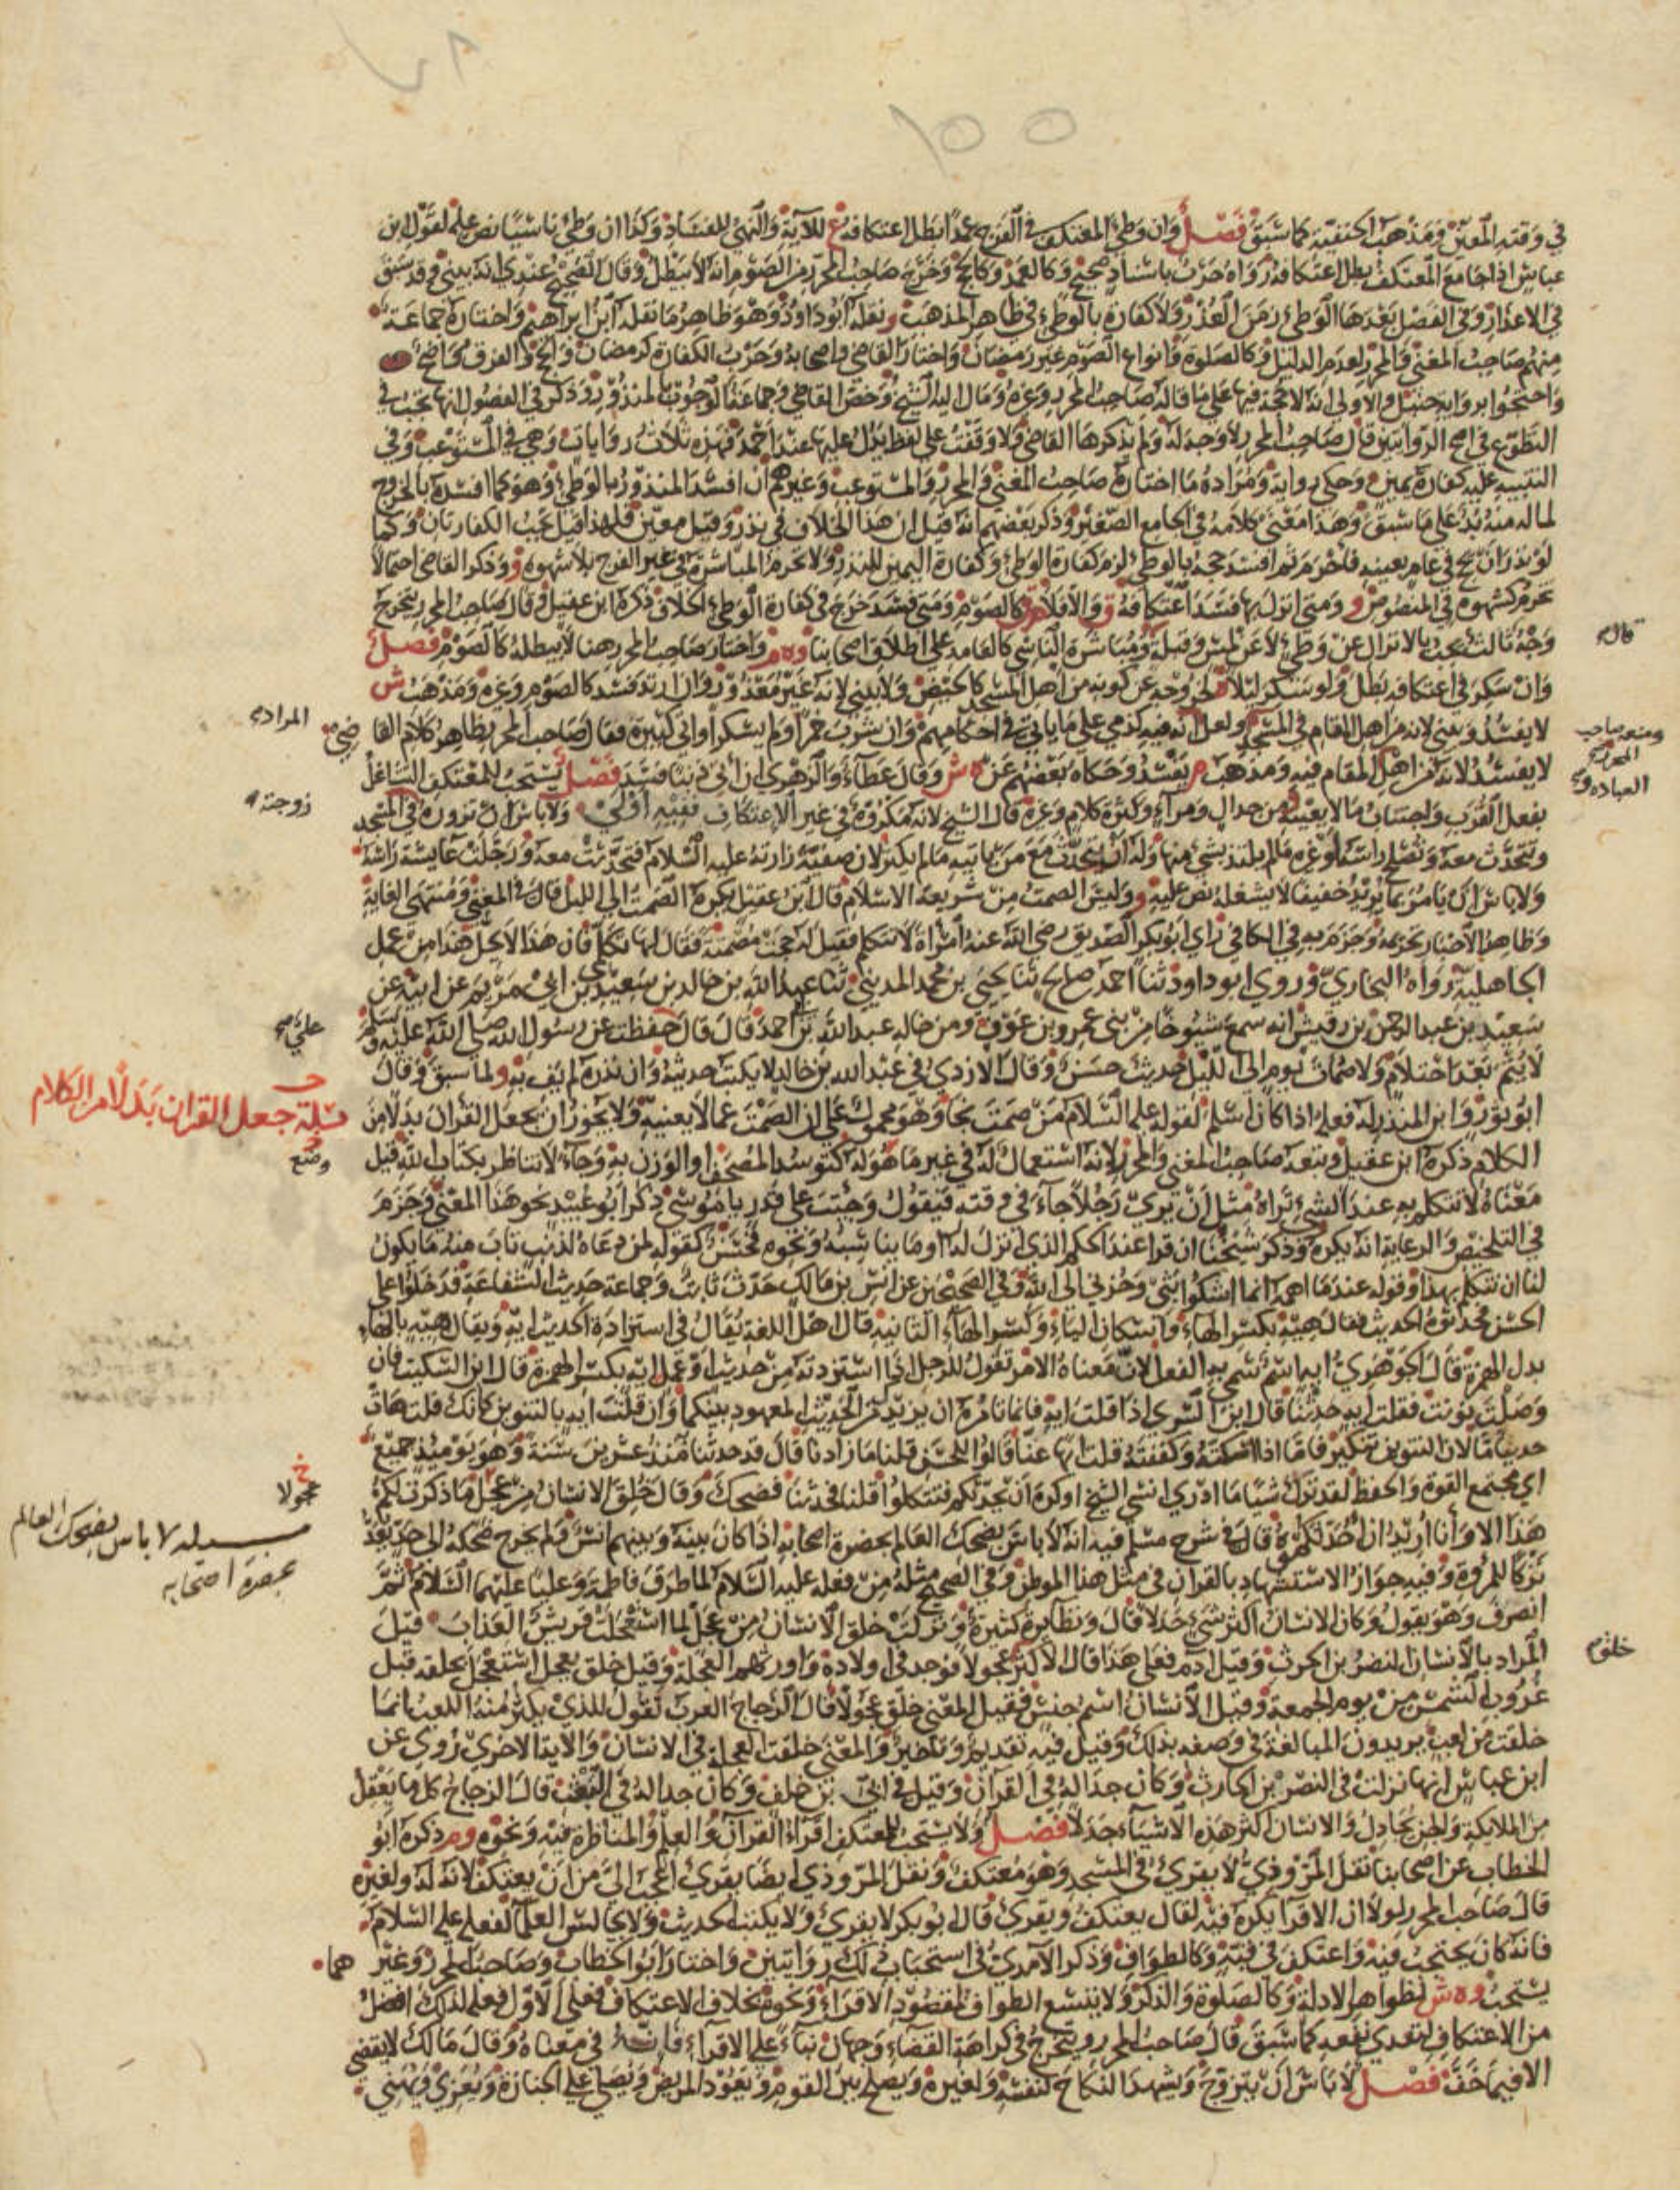 في وقته المعين ومذهب اكنفته كما سبق فصل وان وطئ المعتكف في الفرج عمدا بطل اعتكافه ع للآية والنهي للفساد وكذا ان وطئ ناسيا نص عليه لقول ابن
عباس اذا جامع المعتكف بطل اعتكافه رواه حرب باسناد صحيح وكالعمد وكالحج وخرج صاحب المحرر من الصوم انه لا يبطل وقال الصحيح عندي انه يبني وقد سبق
في الاعذار وفي الفصل بعدها الوطئ زمن العذر ولا كفارة بالوطئ في ظاهر المذهب و نقله ابو داود وهو ظاهر ما نقله ابن ابراهيم واختاره جماعة
منهم صاحب المغني والمحرر لعدم الدليل وكالصلوة وانواع الصوم غير رمضان واختار القاضي واصحابه وجوب الكفارة كرمضان وكحج والفرق واضح
واحتجوا برواية حنبل والاولى انه لا حجة فيها على ما قاله صاحب المحرر وغيره ومال اليه الشيخ وخص القاضي وجماعة الوجوب بالمنذور وذكر في الفصول انها تجب في
التطوع في اصح الروايتين قال صاحب المحرر لا وجه له ولم يذكرها القاضي ولا وقفت على لفظ يدل عليها عند احمد فهذه ثلاث روايات وهي في المستوعب وفي
التنبيه عليه كفارة يمين وحكي رواية ومراده ما اختاره صاحب المغني والمحرر والمستوعب وغيرهم ان افسد المنذور بالوطئ وهو كما افسده بالخروج
لما له منه بد على ما سبق وهذا معنى كلامه في الجامع الصغير وذكر بعضهم انه قيل ان هذا الخلاف في نذر وقيل معين فلهذا قيل تجب الكفارتان وكما
لو نذر ان يحج في عام بعينه فاحرم ثم افسد حجه بالوطئ لزم كفارة الوطئ وكفارة اليمين للنذر ولا تحرم المباشرة في غير الفرج بلا شهوة و وذكر القاضي احتمالا
تحرم كشهوة في المنصوص و ومتى انزل بها فسد اعتكافه ق والا فلا كالصوم ومتى فسد خرج في كفارة الوطئ الخلاف ذكره ابن عقيل وقال صاحب المحرر يتخرج
وجه ثالث تجب بالانزال عن وطئ لا عن لمس وقبلة ومباشرة الناسي كالعامد على اطلاق اصحابنا وه م واختار صاحب المحرر هنا لا يبطله كالصوم فصل
قال
وان سكر في اعتكافه بطل ولو سكر ليلا لخروجه عن كونه من اهل المسجد كالحيض ولا يبني لانه غير معذور وان ارتد فسد كالصوم وغيره ومذهب ش
لا يفسد ويبني لانه من اهل المقام في المسجد ولعل انه فيه كذمي على ما ياتي في احكامهم وان شرب خمرا ولم يسكر او اتى كبيرة فقال صاحب المحرر بظاهر كلام القاضي
المراد
ومنعه صاحب المحرر
لا يفسد لانه من اهل المقام فيه ومذهب م يفسد وحكاه بعضهم عن ه ش وقال عطاء والزهري ان اتى ذنبا فسد فصل يستحب للمعتكف التشاغل
العباده و
بفعل القرب واجتناب ما لا يعنيه من جدال ومراء وكثرة كلام وغيره قال الشيخ لانه مكروه في غير الاعتكاف ففيه اولى ولا باس ان تزوره في المسجد
زوجته
وتتحدث معه وتصلح راسه او غيره ما لم يلتذ بشئ منها وله ان يتحدث مع من ياتيه ما لم يكثر لان صفية زارته عليه السلام فتحدثت معه ورجلت عايشة راسه
ولا باس ان يامر بما يريد خفيفا لا يشغله نص عليه و وليس الصمت من شريعة الاسلام قال ابن عقيل يكره الصمت الى الليل قال في المغني ومنتهى الغاية
وظاهر الاخبار تحريمه وجزم به في الكافي راى ابو بكر الصديق رضي الله عنه امراة لا تتكلم فقيل له حجت مصمتة فقال لها تكلمي فان هذا لا يحل هذا من عمل
الجاهلية رواه البخاري وروى ابو داود ثنا احمد صالح ثنا يحيى بن محمد المديني ثنا عبد الله بن خالد بن سعيد بن ابي مريم عن ابيه عن
سعيد بن عبد الرحمن بن رقيش انه سمع شيوخا من بني عمرو بن عوف ومن خاله عبد الله بن احمد قال قال حفظت عن رسول الله صلى الله عليه وسلم
علي
لا يتم بعد احتلام ولا صمات يوم الى الليل حديث حسن وقال الازدي في عبد الله بن خالد لا يكتب حديثه وان نذره لم يف به و لما سبق وقال
ابو ثور وابن المنذر له فعله اذا كان اسلم لقوله عليه السلام من صمت نجا وهو محمول على ان الصمت عما لا يعنيه ولا يجوز ان يجعل القران بدلا من
مسئلة جعل القران بدلا من الكلام
الكلام ذكره ابن عقيل وتبعه صاحب المغني والمحرر لانه استعمال له في غير ما هو له كتوسد المصحف او الوزن به وجاء لا تناظر بكتاب الله قيل
وضع
معناه لا تتكلم به عند الشئ تراه مثل ان ترى رجلا جاء في وقته فيقول وجئت على قدر يا موسى ذكر ابو عبيد نحو هذا المعنى وجزم
في التلخيص والرعاية انه يكره وذكر شيخنا ان قرا عند الحكم الذي انزل له او ما يناسبه ونحوه فحسن كقوله لمن دعاه لذنب تاب منه ما يكون
لنا ان نتكلم بهذا وقوله عند ما اهمه انما اشكوا بثي وحزني الى الله وفي الصحيحين عن انس بن مالك حدث ثابت وجماعة حديث الشفاعة فدخلوا على
الحسن فحدثوه الحديث فقال هيه بكسر الهاء واسكان الياء وكسر الهاء الثانية قال اهل اللغة يقال في استزادة الحديث ايه ويقال هيه بالهاء
بدل الهمزة قال الجوهري ايه اسم سمي به الفعل لان معناه الامر تقول للرجل اذا استزدته من حديث او عمل ايه بكسر الهمزة قال ابن السكيت فان
وصلت نونت فقلت ايه حدثنا قال ابن السري اذا قلت ايه فانما تامره ان يزيدك من الحديث المعهود بينكما وان قلت ايه بالتنوين كانك قلت هات
حديثا ما لان التنوين تنكير فاما اذا اسكته وكففته قلت ايها عنا قالوا للحسن قلنا ما زادنا قال قد حدثنا منذ عشرين سنة وهو يوميذ جميع
اي مجتمع القوة والحفظ لقد ترك شيئا ما ادري انسي الشيخ او كره ان يحدثكم فتتكلوا قلنا فحدثنا فضحك وقال خلق الانسان من عجل ما ذكرت لكم
خ عجولا
هذا الا وانا اريد ان احدثكموه قال في شرح مسلم فيه انه لا باس بضحك العالم بحضرة اصحابه اذا كان بينه وبينهم انس ولم يخرج ضحكه الى حد يعد
مسيله لا باس بضحك العالم
بحضرة اصحابه
تركا للمروة وفيه جواز الاستشهاد بالقران في مثل هذا الموطن وفي الصحيح مثله من فعله عليه السلام لما طرق فاطمة وعليا عليهما السلام ثم
انصرف وهو يقول وكان الانسان اكثر شئ جدلا قال ونظايره كثيرة ونزلت خلق الانسان من عجل لما استعجلت قريش العذاب قيل
المراد بالانسان النضر بن الحرث وقيل ادم فعلى هذا قال الاكثر عجولا فوجد في اولاده واورثهم العجلة وقيل خلق بعجل استعجل بخلقه قبل
خلقه
غروب الشمس من يوم الجمعة وقيل الانسان اسم جنس فقيل المعنى خلق عجولا قال الزجاج العرب تقول للذي يكثر منه اللعب انما
خلقت من لعب يريدون المبالغة في وصفه بذلك وقيل فيه تقديم وتاخير والمعنى خلقت العجلة في الانسان والاية الاخرى روي عن
ابن عباس انها نزلت في النضر بن الحارث وكان جداله في القرآن وقيل في ابي بن خلف وكان جداله في البعث قال الزجاج كل ما يعقل
من الملائكة والجن يجادل والانسان اكثر هذه الاشياء جدلا فصل ولا يستحب للمعتكف اقراء القرآن والعلم والمناظرة فيه ونحوه وم ذكره ابو
الخطاب عن اصحابنا نقل المروذي لا يقرئ في المسجد وهو معتكف ونقل المروذي ايضا يقرئ اعجب الي من ان يعتكف لانه له ولغيره
قال صاحب المحرر لولا ان الاقرا يكره فيه لقال يعتكف ويقرئ قال ابو بكر لا يقرئ ولا يكتب الحديث ولا يجالس العلما لفعله عليه السلام
فانه كان يحتجب فيه واعتكف في قبة وكالطواف وذكر الآمدي في استحباب ذلك روايتين واختار ابو الخطاب وصاحب المحرر وغيرهما
يستحب وه ش لظواهر الادلة وكالصلوة والذكر ولا يتسع الطواف لمقصود الاقراء ونحوه بخلاف الاعتكاف فعلى الاول فعله لذلك افضل
من الاعتكاف لتعدي نفعه كما سبق قال صاحب المحرر ويتخرج في كراهة القضاء وجهان بناء على الاقراء فانه في معناه وقال مالك لا يقضي
الا فيما خف فصل لا باس ان يتزوج ويشهد النكاح لنفسه ولغيره ويصلح بين القوم ويعود المريض ويصلي على الجنازة ويعزي ويهني